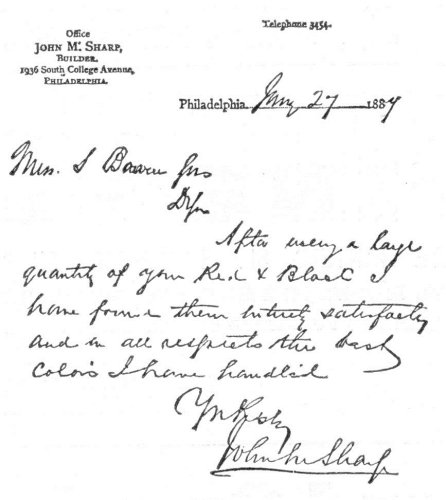 Office
JOHN Mc. SHARP,
BUILDER.
1936 South College Avenue,
PHILADELPHIA.
Telephone 3454.
Philadelphia 27 1887
Mess. S Bowen
After using a large
quantity of your Red & Black I
have found them entirely satisfactory
and in all respects the best
Colors I have handled
Yrs Respty
John M Sharp